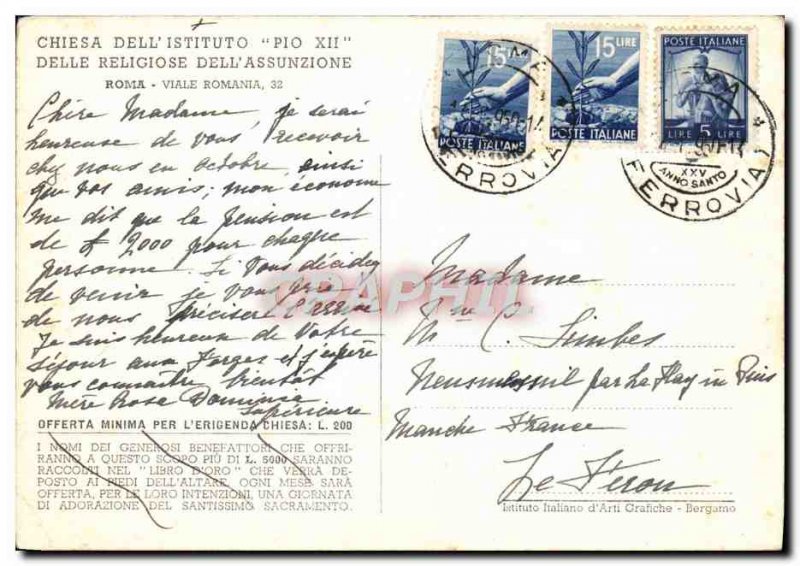 CHIESA DELL'ISTITUTO "PIO XII"
DELLE RELIGIOSE DELL'ASSUNZIONE
ROMA - VIALE ROMANIA, 32
Chère Madame, je serai
heureuse de vous recevoir
chez nous en octobre, ainsi
que vos amis; mon économe
me dit que la pension est
de £ 2000 pour chaque
personne. Si vous décidez
de venir je vous prie
de nous préciser
Je suis heureux de votre
séjour aux Forges et j'espère
vous connaître bientôt
Mère Rosa Dominica
Supérieure
OFFERTA MINIMA PER L'ERIGENDA CHIESA: L. 200
I NOMI DEI GENEROSI BENEFATTORI CHE OFFRI-
RANNO A QUESTO SCOPO PIÙ DI L. 5000 SARANNO
RACCOLTI NEL "LIBRO D'ORO" CHE VERRÀ DE-
POSTO AI PIEDI DELL'ALTARE. OGNI MESE SARÀ
OFFERTA, PER LE LORO INTENZIONI, UNA GIORNATA
DI ADORAZIONE DEL SANTISSIMO SACRAMENTO.
15 LIRE
POSTE ITALIANE
15 LIRE
POSTE ITALIANE
POSTE ITALIANE
LIRE 5 LIRE
FERROVIA
XXV
ANNO SANTO
FERROVIA
Madame
C. Limbes
par La Haye du Puis
Manche France
Istituto Italiano d'Arti Grafiche - Bergamo